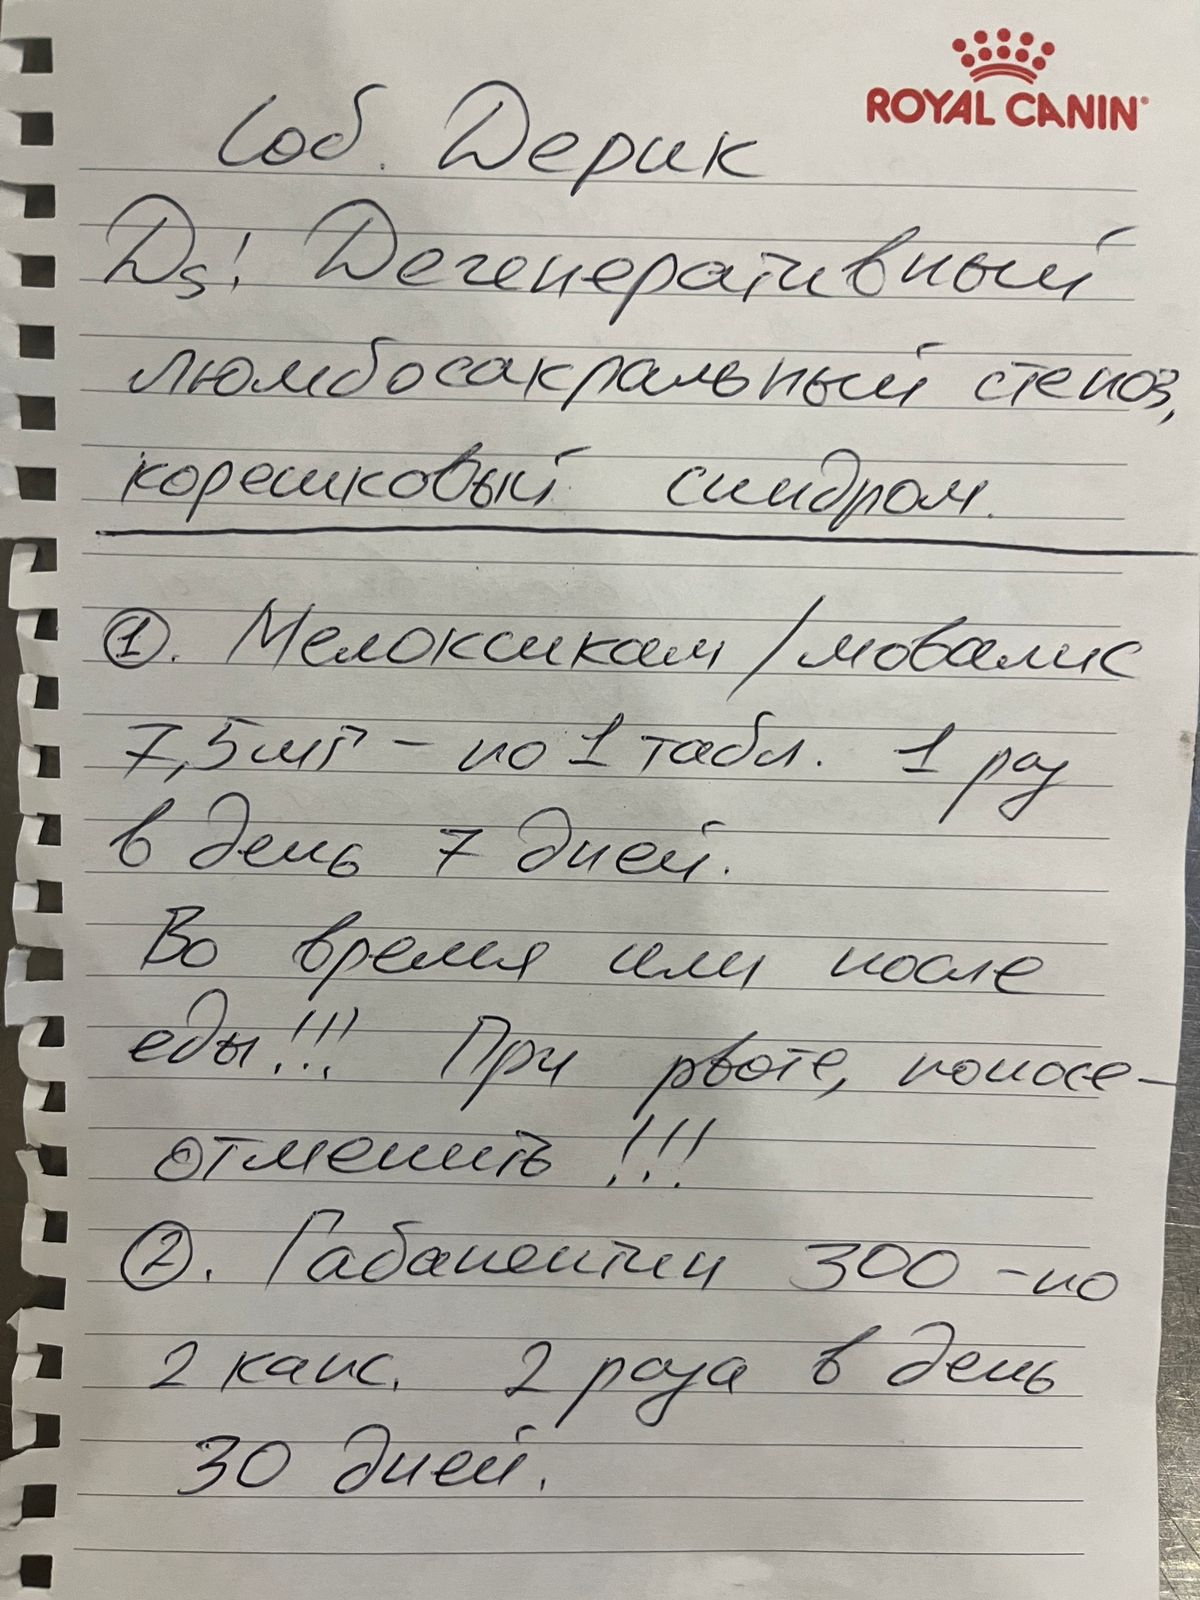 ROYAL CANIN
Соб. Дерик
Ds: Дегенеративный
люмбосакральный стеноз,
корешковый синдром.
1. Мелоксикам/мовалис
7,5мг - по 1 табл. 1 раз
в день 7 дней.
Во время или после
еды!!! При рвоте, поносе -
отменить!!!
2. Габапентин 300 - по
2 капс. 2 раза в день
30 дней.